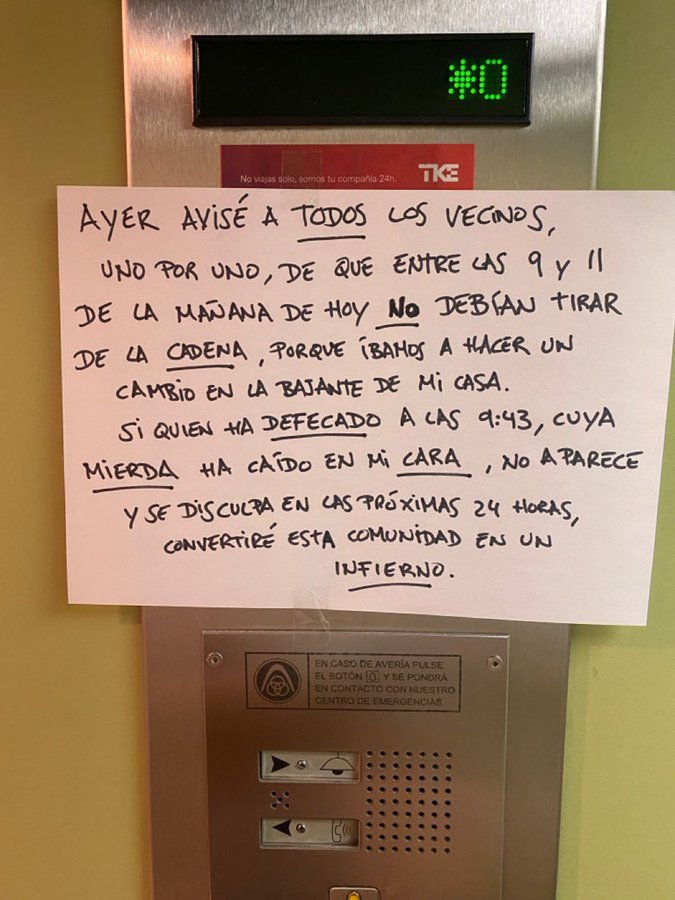 *0
No viajas solo, somos tu compañía 24h. TKE
AYER AVISÉ A TODOS LOS VECINOS,
UNO POR UNO, DE QUE ENTRE LAS 9 y 11
DE LA MAÑANA DE HOY NO DEBÍAN TIRAR
DE LA CADENA, PORQUE ÍBAMOS A HACER UN
CAMBIO EN LA BAJANTE DE MI CASA.
SI QUIEN HA DEFECADO A LAS 9:43, CUYA
MIERDA HA CAÍDO EN MI CARA, NO APARECE
Y SE DISCULPA EN LAS PRÓXIMAS 24 HORAS,
CONVERTIRÉ ESTA COMUNIDAD EN UN
INFIERNO.
EN CASO DE AVERÍA PULSE
EL BOTÓN Y SE PONDRÁ
EN CONTACTO CON NUESTRO
CENTRO DE EMERGENCIAS.